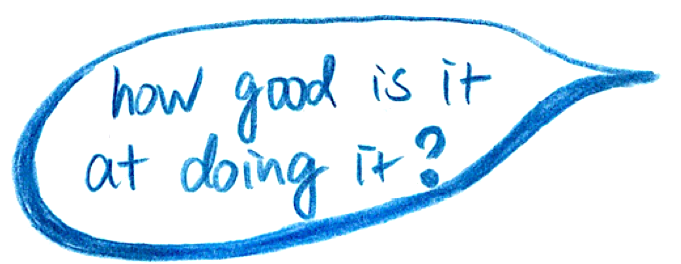 how good is it
at doing it?